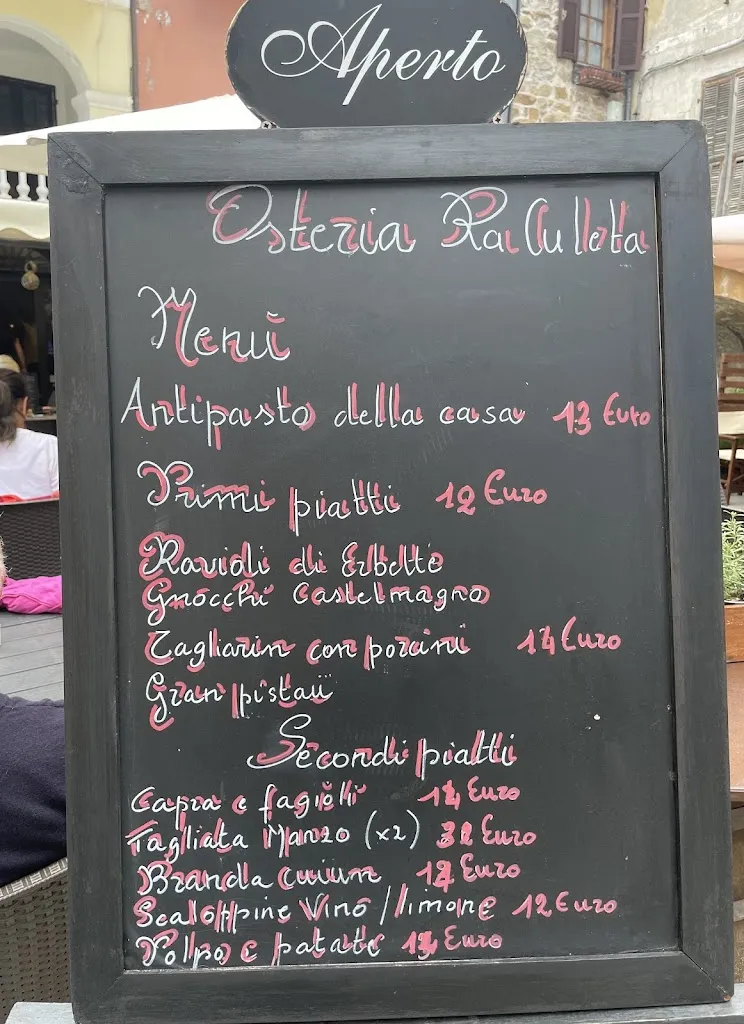 Aperto
Osteria Ra Culleta
Menù
Antipasto della casa 13 Euro
Primi piatti 12 Euro
Ravioli di Erbette
Gnocchi Castelmagno
Tagliarin con porcini 14 Euro
Gran pistau
Secondi piatti
Capra e fagioli 14 Euro
Tagliata Manzo (x2) 32 Euro
Branda cuiun Euro
Scaloppine Vino / limone 12 Euro
Polpo e patate Euro